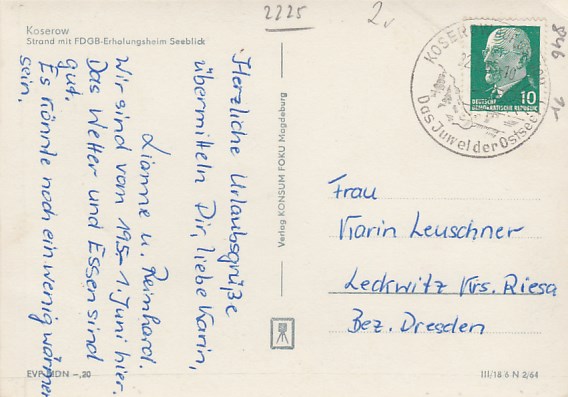 2225
2,-
Koserow
Strand mit FDGB-Erholungsheim Seeblick
Herzliche Urlaubsgrüße
übermitteln Dir, liebe Karin,
Lianne u. Reinhard.
Wir sind vom 19.5-1. Juni hier.
Das Wetter und Essen sind
gut.
Es könnte noch ein wenig wärmer
sein.
Verlag KONSUM FOKU Magdeburg
KOSEROW
Das Juwel der Ostsee
10
DEUTSCHE
DEMOKRATISCHE REPUBLIK
Frau
Karin Leuschner
Leckwitz Krs. Riesa
Bez. Dresden
EVP MDN -,20
III/18 6 N 2/64